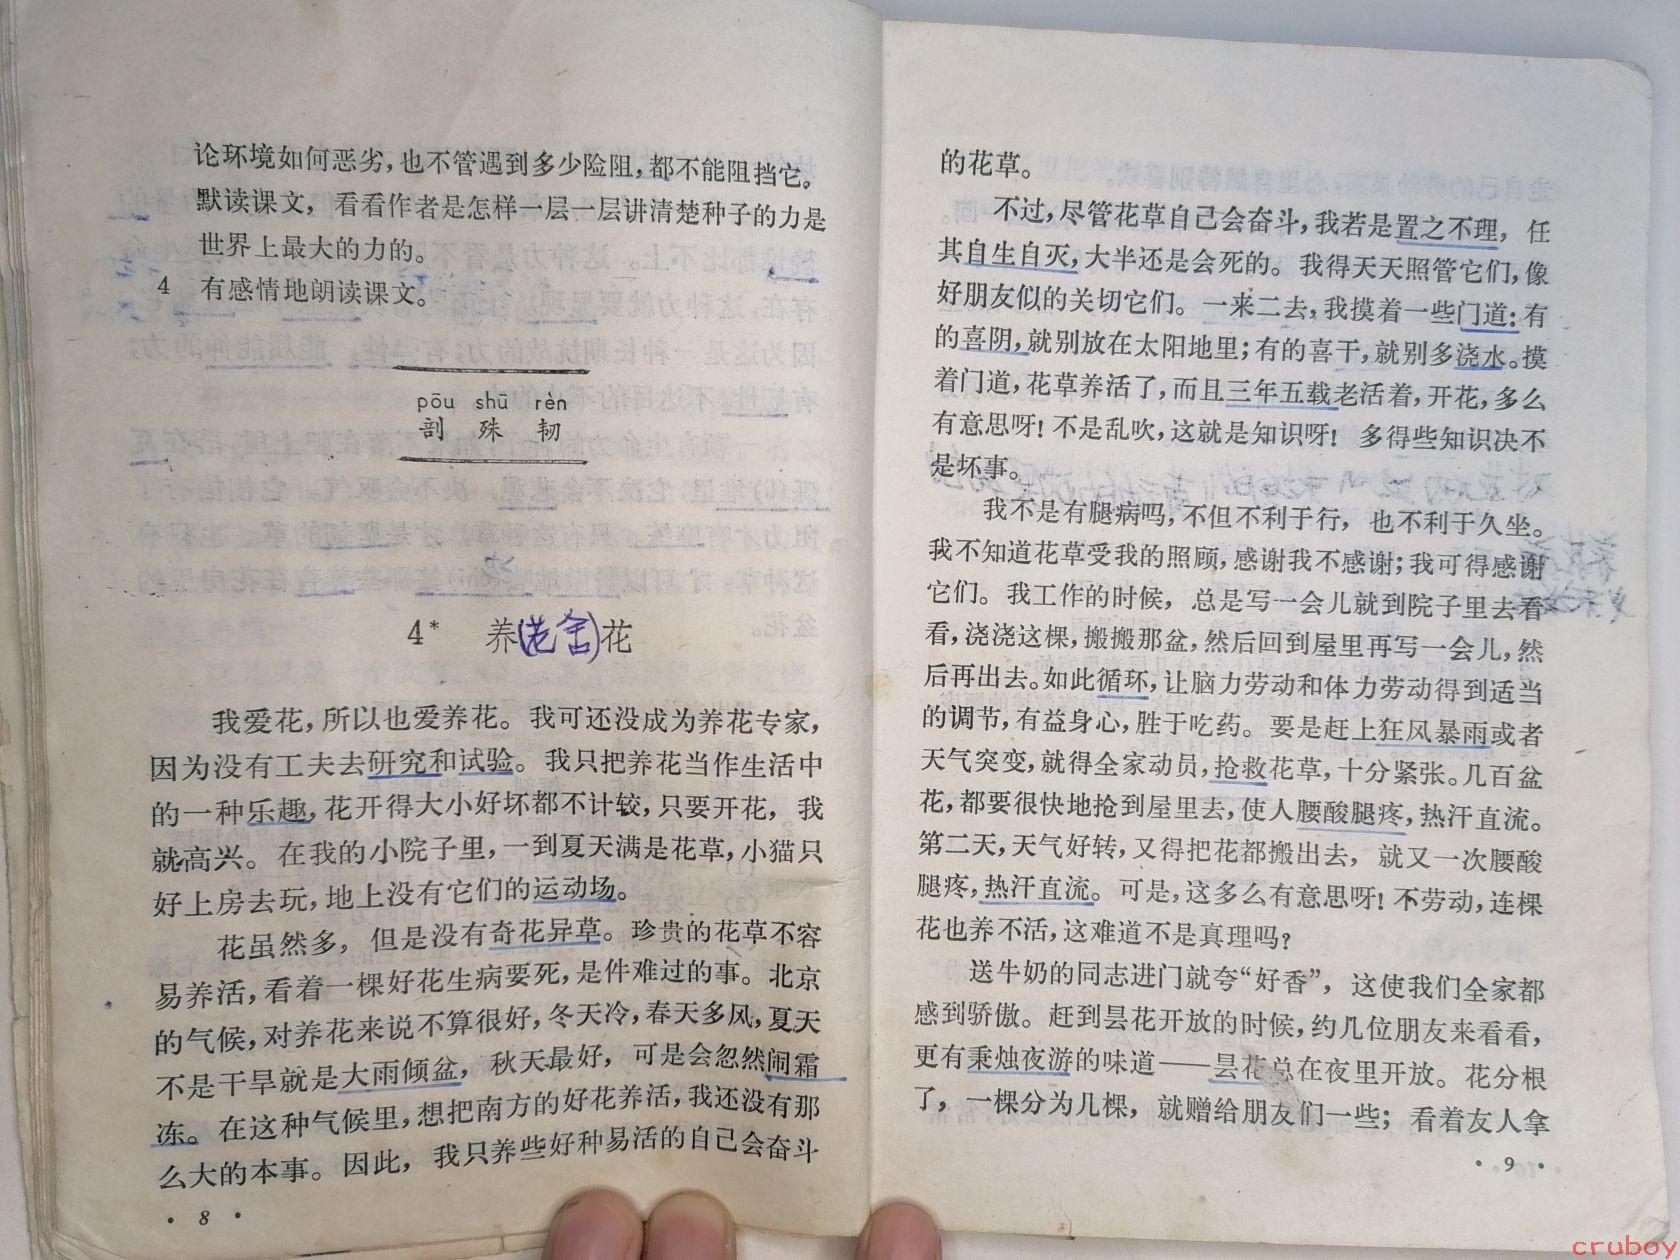 论环境如何恶劣，也不管遇到多少险阻，都不能阻挡它。
默读课文，看看作者是怎样一层一层讲清楚种子的力是
世界上最大的力的。
4 有感情地朗读课文。
pōu shū rèn
剖 殊 韧
4* 养(老舍)花
我爱花，所以也爱养花。我可还没成为养花专家，
因为没有工夫去研究和试验。我只把养花当作生活中
的一种乐趣，花开得大小好坏都不计较，只要开花，我
就高兴。在我的小院子里，一到夏天满是花草，小猫只
好上房去玩，地上没有它们的运动场。
花虽然多，但是没有奇花异草。珍贵的花草不容
易养活，看着一棵好花生病要死，是件难过的事。北京
的气候，对养花来说不算很好，冬天冷，春天多风，夏天
不是干旱就是大雨倾盆，秋天最好，可是会忽然闹霜
冻。在这种气候里，想把南方的好花养活，我还没有那
么大的本事。因此，我只养些好种易活的自己会奋斗
• 8 •
的花草。
不过，尽管花草自己会奋斗，我若是置之不理，任
其自生自灭，大半还是会死的。我得天天照管它们，像
好朋友似的关切它们。一来二去，我摸着一些门道：有
的喜阴，就别放在太阳地里；有的喜干，就别多浇水。摸
着门道，花草养活了，而且三年五载老活着，开花，多么
有意思呀！不是乱吹，这就是知识呀！多得些知识决不
是坏事。
我不是有腿病吗，不但不利于行，也不利于久坐。
我不知道花草受我的照顾，感谢我不感谢；我可得感谢
它们。我工作的时候，总是写一会儿就到院子里去看
看，浇浇这棵，搬搬那盆，然后回到屋里再写一会儿，然
后再出去。如此循环，让脑力劳动和体力劳动得到适当
的调节，有益身心，胜于吃药。要是赶上狂风暴雨或者
天气突变，就得全家动员，抢救花草，十分紧张。几百盆
花，都要很快地抢到屋里去，使人腰酸腿疼，热汗直流。
第二天，天气好转，又得把花都搬出去，就又一次腰酸
腿疼，热汗直流。可是，这多么有意思呀！不劳动，连棵
花也养不活，这难道不是真理吗？
送牛奶的同志进门就夸“好香”，这使我们全家都
感到骄傲。赶到昙花开放的时候，约几位朋友来看看，
更有秉烛夜游的味道——昙花总在夜里开放。花分根
了，一棵分为几棵，就赠给朋友们一些；看着友人拿
• 9 •
cruboy